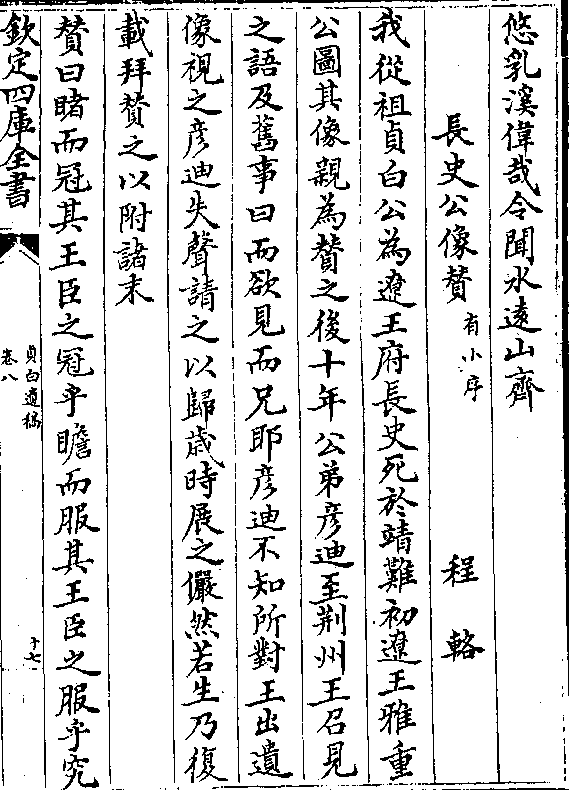 悠乳溪偉哉令聞水遠山齊
長史公像贊 有小序 程輅
我從祖貞白公為遼王府長史死於靖難初遼王雅重
公圖其像親為贊之後十年公弟彥迪至荆州王召見
之語及舊事曰而欲見而兄耶彥迪不知所對王出遺
像視之彥迪失聲請之以歸歲時展之儼然若生乃復
載拜贊之以附諸末
贊曰睹而冠其王臣之冠乎瞻而服其王臣之服乎究
欽定四庫全書
貞白遺稿
卷八
十七